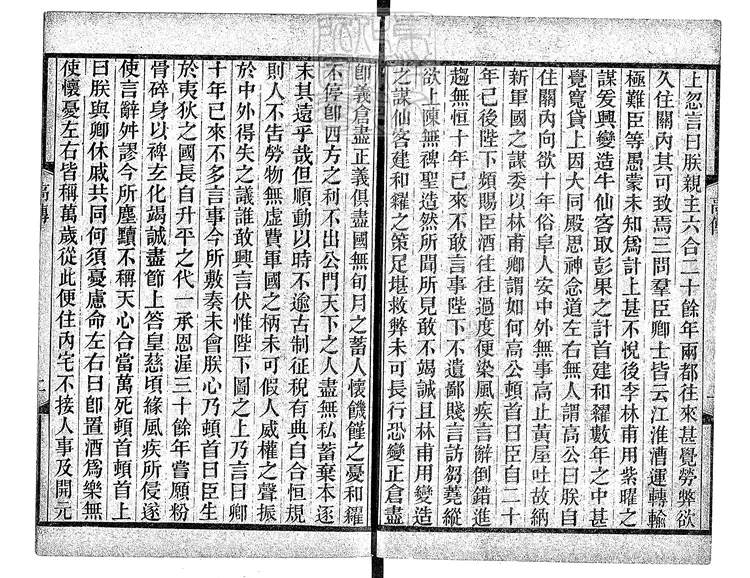 上忽言曰朕親主六合二十餘年兩都往來甚覺勞弊欲
久住關內其可致焉三問羣臣卿士皆云江淮漕運轉輸
極難臣等愚蒙未知爲計上甚不悅後李林甫用紫曜之
謀爰興變造牛仙客取彭果之計首建和糴數年之中甚
覺寬貸上因大同殿思神念道左右無人謂高公曰朕自
住關內向欲十年俗阜人安中外無事高止黃屋吐故納
新軍國之謀委以林甫卿謂如何高公頓首曰臣自二十
年已後陛下頻賜臣酒往往過度便染風疾言辭倒錯進
趨無恒十年已來不敢言事陛下不遺鄙賤言訪芻蕘縱
欲上陳無裨聖造然所聞所見敢不竭誠且林甫用變造
之謀仙客建和糴之策足堪救弊未可長行恐變正倉盡
卽義倉盡正義俱盡國無旬月之蓄人懷饑饉之憂和糴
不停卽四方之利不出公門天下之人盡無私蓄棄本逐
末其遠乎哉但順動以時不逾古制征稅有典自合恒規
則人不告勞物無虛費軍國之柄未可假人威權之聲振
於中外得失之議誰敢興言伏惟陛下圖之上乃言曰卿
十年已來不多言事今所敷奏未會朕心乃頓首曰臣生
於夷狄之國長自升平之代一承恩渥三十餘年嘗願粉
骨碎身以裨玄化竭誠盡節上答皇慈頃緣風疾所侵遂
使言辭舛謬今所塵黷不稱天心合當萬死頓首頓首上
曰朕與卿休戚共同何須憂慮命左右曰卽置酒爲樂無
使懷憂左右皆稱萬歲從此便住內宅不接人事及開元
高傳
二